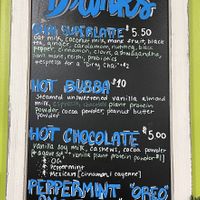 DRINKS
SUPERLATTE $5.50
oat milk, coconut milk, monk fruit, black
tea, ginger, cardamom, nutmeg, black
pepper, cinnamon, clove, ashwagandha,
lion's mane, reishi, probiotics
+espresso for a "Dirty Chai" +$2
HOT BUBBA $10
Steamed unsweetened vanilla almond
milk, espresso, chocolate plant protein
powder, cocoa powder, peanut butter
powder
HOT CHOCOLATE $5.00
vanilla soy milk, cashews, cocoa powder
+ agave (+ vanilla plant protein powder +$1)
* OG
* Peppermint
* Mexican [cinnamon, cayenne]
PEPPERMINT "OREO"